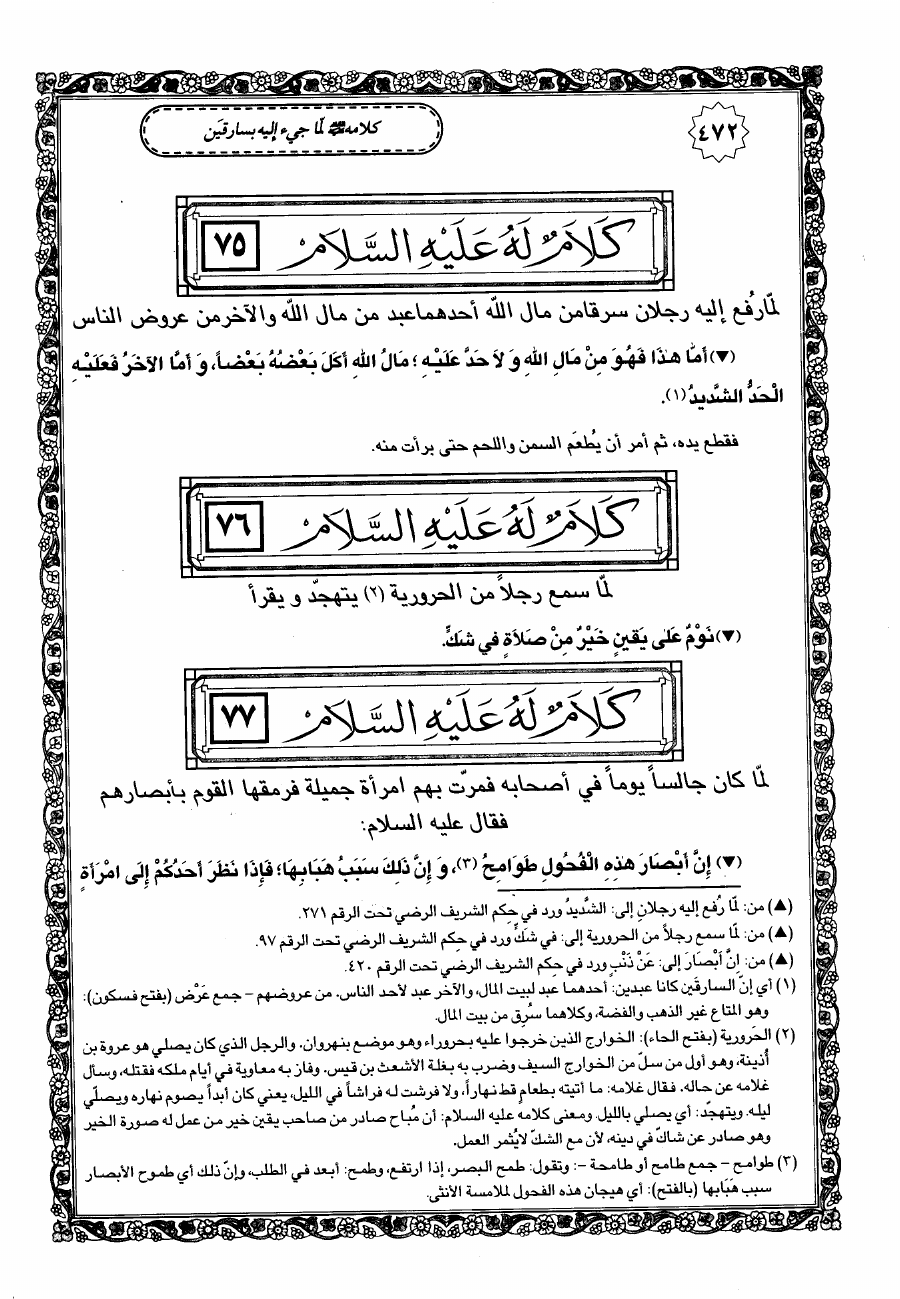 ٤٧٢
كلامه ﷺ لمّا جيء إليه بسارقَين
كَلاَمٌ لَهُ عَلَيْهِ السَّلاَمْ
٧٥
لمّا رُفع إليه رجلان سرقا من مال اللّه أحدهما عبد من مال اللّه والآخر من عروض الناس
(▼) أَمَّا هذَا فَهُوَ مِنْ مَالِ اللهِ وَ لاَ حَدَّ عَلَيْهِ ؛ مَالُ اللهِ أَكَلَ بَعْضُهُ بَعْضاً، وَ أَمَّا الآخَرُ فَعَلَيْهِ
الْحَدُّ الشَّدِيدُ (١).
فقطع يده، ثم أمر أن يُطعَم السمن واللحم حتى برأت منه.
كَلاَمٌ لَهُ عَلَيْهِ السَّلاَمْ
٧٦
لمّا سمع رجلاً من الحرورية (٢) يتهجّد و يقرأ
(▼) نَوْمٌ عَلى يَقِينٍ خَيْرٌ مِنْ صَلاَةٍ في شَكٍّ.
كَلاَمٌ لَهُ عَلَيْهِ السَّلاَمْ
٧٧
لمّا كان جالساً يوماً في أصحابه فمرّت بهم امرأة جميلة فرمقها القوم بأبصارهم
فقال عليه السلام:
(▼) إِنَّ أَبْصَارَ هذِهِ الْفُحُولِ طَوَامِحُ (٣)، وَ إِنَّ ذلِكَ سَبَبُ هَبَابِهَا؛ فَإِذَا نَظَرَ أَحَدُكُمْ إِلَى امْرَأَةٍ
(▲) من: لمّا رُفع إليه رجلانِ إلى: الشَّديدُ ورد في حِكم الشريف الرضي تحت الرقم ٢٧١.
(▲) من: لمّا سمع رجلاً من الحرورية إلى: في شَكٍّ ورد في حِكم الشريف الرضي تحت الرقم ٩٧.
(▲) من: إِنَّ أَبْصَارَ إلى: عَنْ ذَنْبٍ ورد في حِكم الشريف الرضي تحت الرقم ٤٢٠.
(١) أي إنّ السارقَين كانا عبدين: أحدهما عبد لبيت المال، والآخر عبد لأحد الناس. من عروضهم – جمع عَرْض (بفتح فسكون):
وهو المتاع غير الذهب والفضة، وكلاهما سُرِق من بيت المال.
(٢) الحَرورية (بفتح الحاء): الخوارج الذين خرجوا عليه بحروراء وهو موضع بنهروان. والرجل الذي كان يصلي هو عروة بن
أُذينة، وهو أول من سلّ من الخوارج السيف وضرب به بغلة الأشعث بن قيس. وفاز به معاوية في أيام ملكه فقتله، وسأل
غلامه عن حاله. فقال غلامه: ما أتيته بطعامٍ قط نهاراً، ولا فرشت له فراشاً في الليل، يعني كان أبداً يصوم نهاره ويصلّي
ليله. ويتهجّد: أي يصلي بالليل. ومعنى كلامه عليه السلام: أن مُباح صادر من صاحب يقين خير من عمل له صورة الخير
وهو صادر عن شاكّ في دينه، لأن مع الشكّ لا يُثمر العمل.
(٣) طوامح – جمع طامح أو طامحة –: وتقول: طمح البصر، إذا ارتفع، وطمح: أبعد في الطلب، وإنّ ذلك أي طموح الأبصار
سبب هَبَابها (بالفتح): أي هيجان هذه الفحول لملامسة الأنثى.